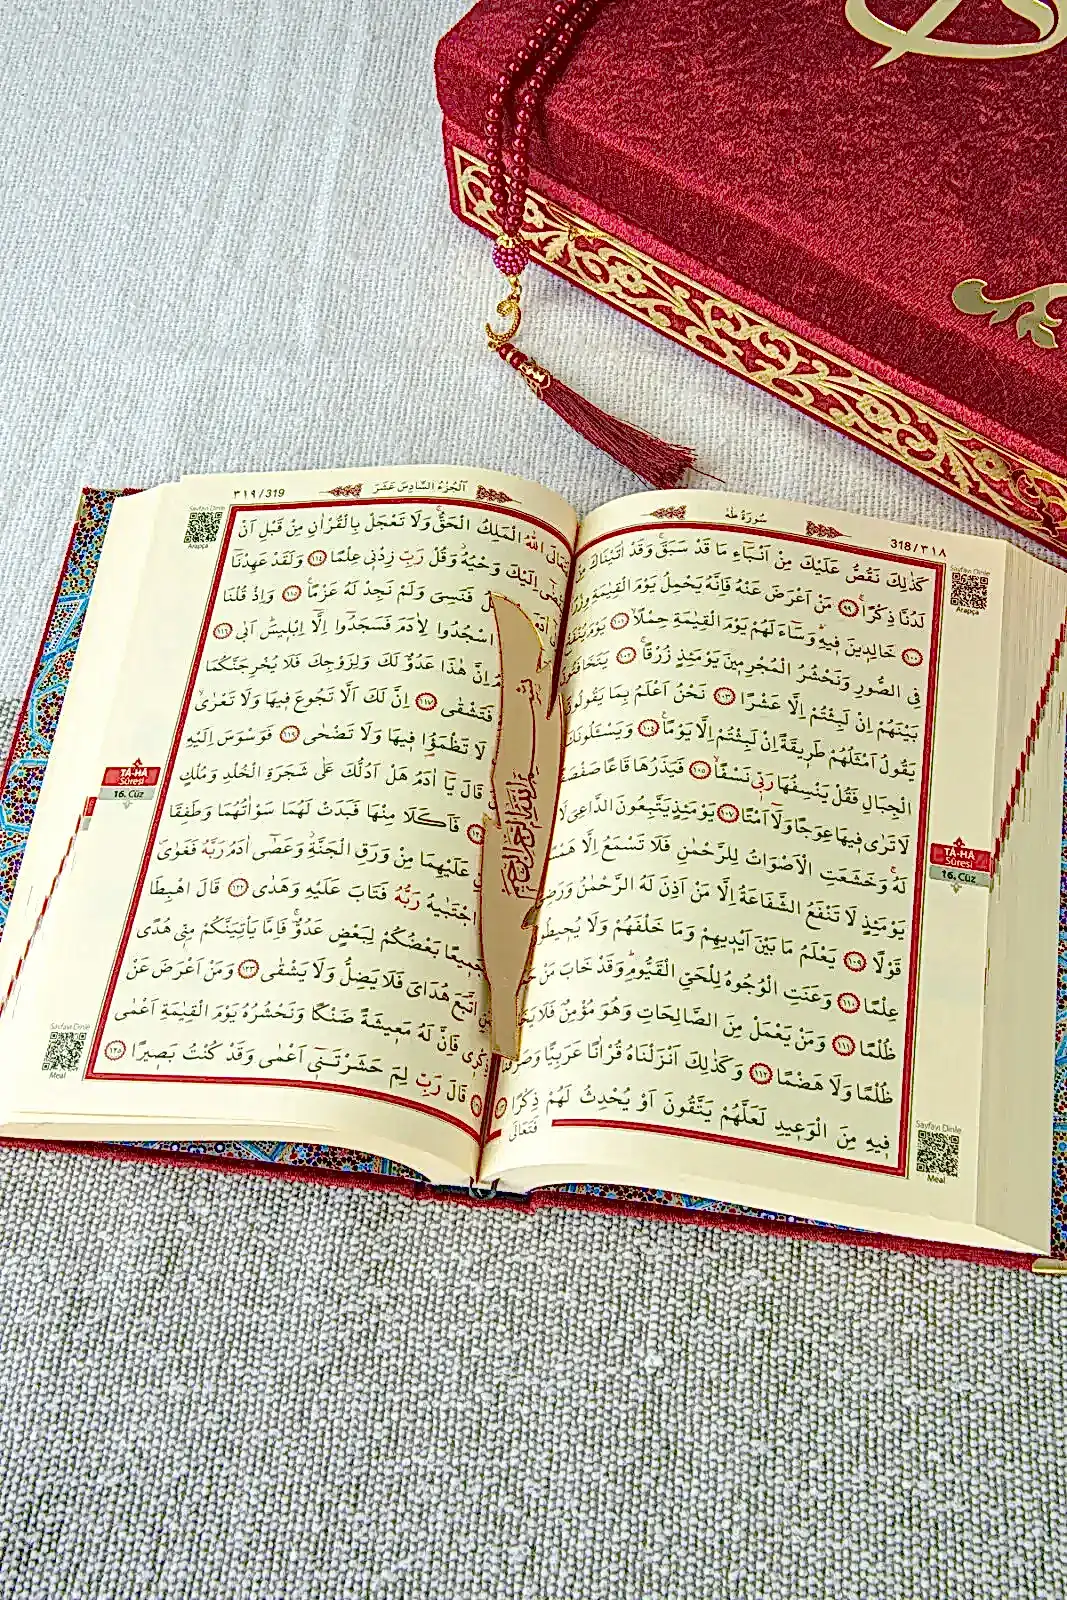 سُورَةُ طٰهٰ
318/٣١٨
كَذٰلِكَ نَقُصُّ عَلَيْكَ مِنْ اَنْبَٓاءِ مَا قَدْ سَبَقَۚ وَقَدْ اٰتَيْنَاكَ
لَدُنَّا ذِكْرًاۚ ﴿٩٩﴾ مَنْ اَعْرَضَ عَنْهُ فَاِنَّهُ يَحْمِلُ يَوْمَ الْقِيٰمَةِ وِزْرًا
﴿١٠٠﴾ خَالِدِينَ فِيهِۜ وَسَٓاءَ لَهُمْ يَوْمَ الْقِيٰمَةِ حِمْلًاۙ ﴿١٠١﴾ يَوْمَ يُنْفَخُ
فِي الصُّورِ وَنَحْشُرُ الْمُجْرِمِينَ يَوْمَئِذٍ زُرْقًاۚ ﴿١٠٢﴾ يَتَخَافَتُونَ
بَيْنَهُمْ اِنْ لَبِثْتُمْ اِلَّا عَشْرًا ﴿١٠٣﴾ نَحْنُ اَعْلَمُ بِمَا يَقُولُونَ
يَقُولُ اَمْثَلُهُمْ طَرِيقَةً اِنْ لَبِثْتُمْ اِلَّا يَوْمًا۟ ﴿١٠٤﴾ وَيَسْـَٔلُونَكَ
الْجِبَالِ فَقُلْ يَنْسِفُهَا رَبِّي نَسْفًاۙ ﴿١٠٥﴾ فَيَذَرُهَا قَاعًا صَفْصَفًا
لَا تَرٰى فِيهَا عِوَجًا وَلَٓا اَمْتًاۜ ﴿١٠٧﴾ يَوْمَئِذٍ يَتَّبِعُونَ الدَّاعِيَ لَا
لَهُۚ وَخَشَعَتِ الْاَصْوَاتُ لِلرَّحْمٰنِ فَلَا تَسْمَعُ اِلَّا هَمْسًا
يَوْمَئِذٍ لَا تَنْفَعُ الشَّفَاعَةُ اِلَّا مَنْ اَذِنَ لَهُ الرَّحْمٰنُ وَرَضِيَ
قَوْلًا ﴿١٠٩﴾ يَعْلَمُ مَا بَيْنَ اَيْدِيهِمْ وَمَا خَلْفَهُمْ وَلَا يُحِيطُونَ
عِلْمًا ﴿١١٠﴾ وَعَنَتِ الْوُجُوهُ لِلْحَيِّ الْقَيُّومِۜ وَقَدْ خَابَ مَنْ
ظُلْمًا ﴿١١١﴾ وَمَنْ يَعْمَلْ مِنَ الصَّالِحَاتِ وَهُوَ مُؤْمِنٌ فَلَا يَخَافُ
ظُلْمًا وَلَا هَضْمًا ﴿١١٢﴾ وَكَذٰلِكَ اَنْزَلْنَاهُ قُرْاٰنًا عَرَبِيًّا وَصَرَّفْنَا
فِيهِ مِنَ الْوَعِيدِ لَعَلَّهُمْ يَتَّقُونَ اَوْ يُحْدِثُ لَهُمْ ذِكْرًا
فَتَعَالَى
Sayfayı Dinle
Arapça
TÂ-HÂ
Sûresi
16. Cüz
Sayfayı Dinle
Meal
اَلْجُزْءُ السَّادِسَ عَشَرَ
٣١٩/319
فَتَعَالَى اللّٰهُ الْمَلِكُ الْحَقُّۚ وَلَا تَعْجَلْ بِالْقُرْاٰنِ مِنْ قَبْلِ اَنْ
يُقْضٰٓى اِلَيْكَ وَحْيُهُۘ وَقُلْ رَبِّ زِدْنِي عِلْمًا ﴿١١٤﴾ وَلَقَدْ عَهِدْنَٓا
فَنَسِيَ وَلَمْ نَجِدْ لَهُ عَزْمًا۟ ﴿١١٥﴾ وَاِذْ قُلْنَا
اسْجُدُوا لِاٰدَمَ فَسَجَدُٓوا اِلَّٓا اِبْلِيسَۜ اَبٰى ﴿١١٦﴾
اِنَّ هٰذَا عَدُوٌّ لَكَ وَلِزَوْجِكَ فَلَا يُخْرِجَنَّكُمَا
فَتَشْقٰى ﴿١١٧﴾ اِنَّ لَكَ اَلَّا تَجُوعَ فِيهَا وَلَا تَعْرٰىۙ
لَا تَظْمَؤُ۬ا فِيهَا وَلَا تَضْحٰى ﴿١١٩﴾ فَوَسْوَسَ اِلَيْهِ
قَالَ يَٓا اٰدَمُ هَلْ اَدُلُّكَ عَلٰى شَجَرَةِ الْخُلْدِ وَمُلْكٍ
فَاَكَلَا مِنْهَا فَبَدَتْ لَهُمَا سَوْاٰتُهُمَا وَطَفِقَا
عَلَيْهِمَا مِنْ وَرَقِ الْجَنَّةِۘ وَعَصٰٓى اٰدَمُ رَبَّهُ فَغَوٰىۖ
اجْتَبٰيهُ رَبُّهُ فَتَابَ عَلَيْهِ وَهَدٰى ﴿١٢٢﴾ قَالَ اهْبِطَا
جَمِيعًا بَعْضُكُمْ لِبَعْضٍ عَدُوٌّۚ فَاِمَّا يَأْتِيَنَّكُمْ مِنِّي هُدًى
اتَّبَعَ هُدَايَ فَلَا يَضِلُّ وَلَا يَشْقٰى ﴿١٢٣﴾ وَمَنْ اَعْرَضَ عَنْ
ذِكْرِي فَاِنَّ لَهُ مَعِيشَةً ضَنْكًا وَنَحْشُرُهُ يَوْمَ الْقِيٰمَةِ اَعْمٰى
قَالَ رَبِّ لِمَ حَشَرْتَنِٓي اَعْمٰى وَقَدْ كُنْتُ بَصِيرًا ﴿١٢٥﴾
Sayfayı Dinle
Arapça
TÂ-HÂ
Sûresi
16. Cüz
Sayfayı Dinle
Meal
بسم الله الرحمن الرحيم